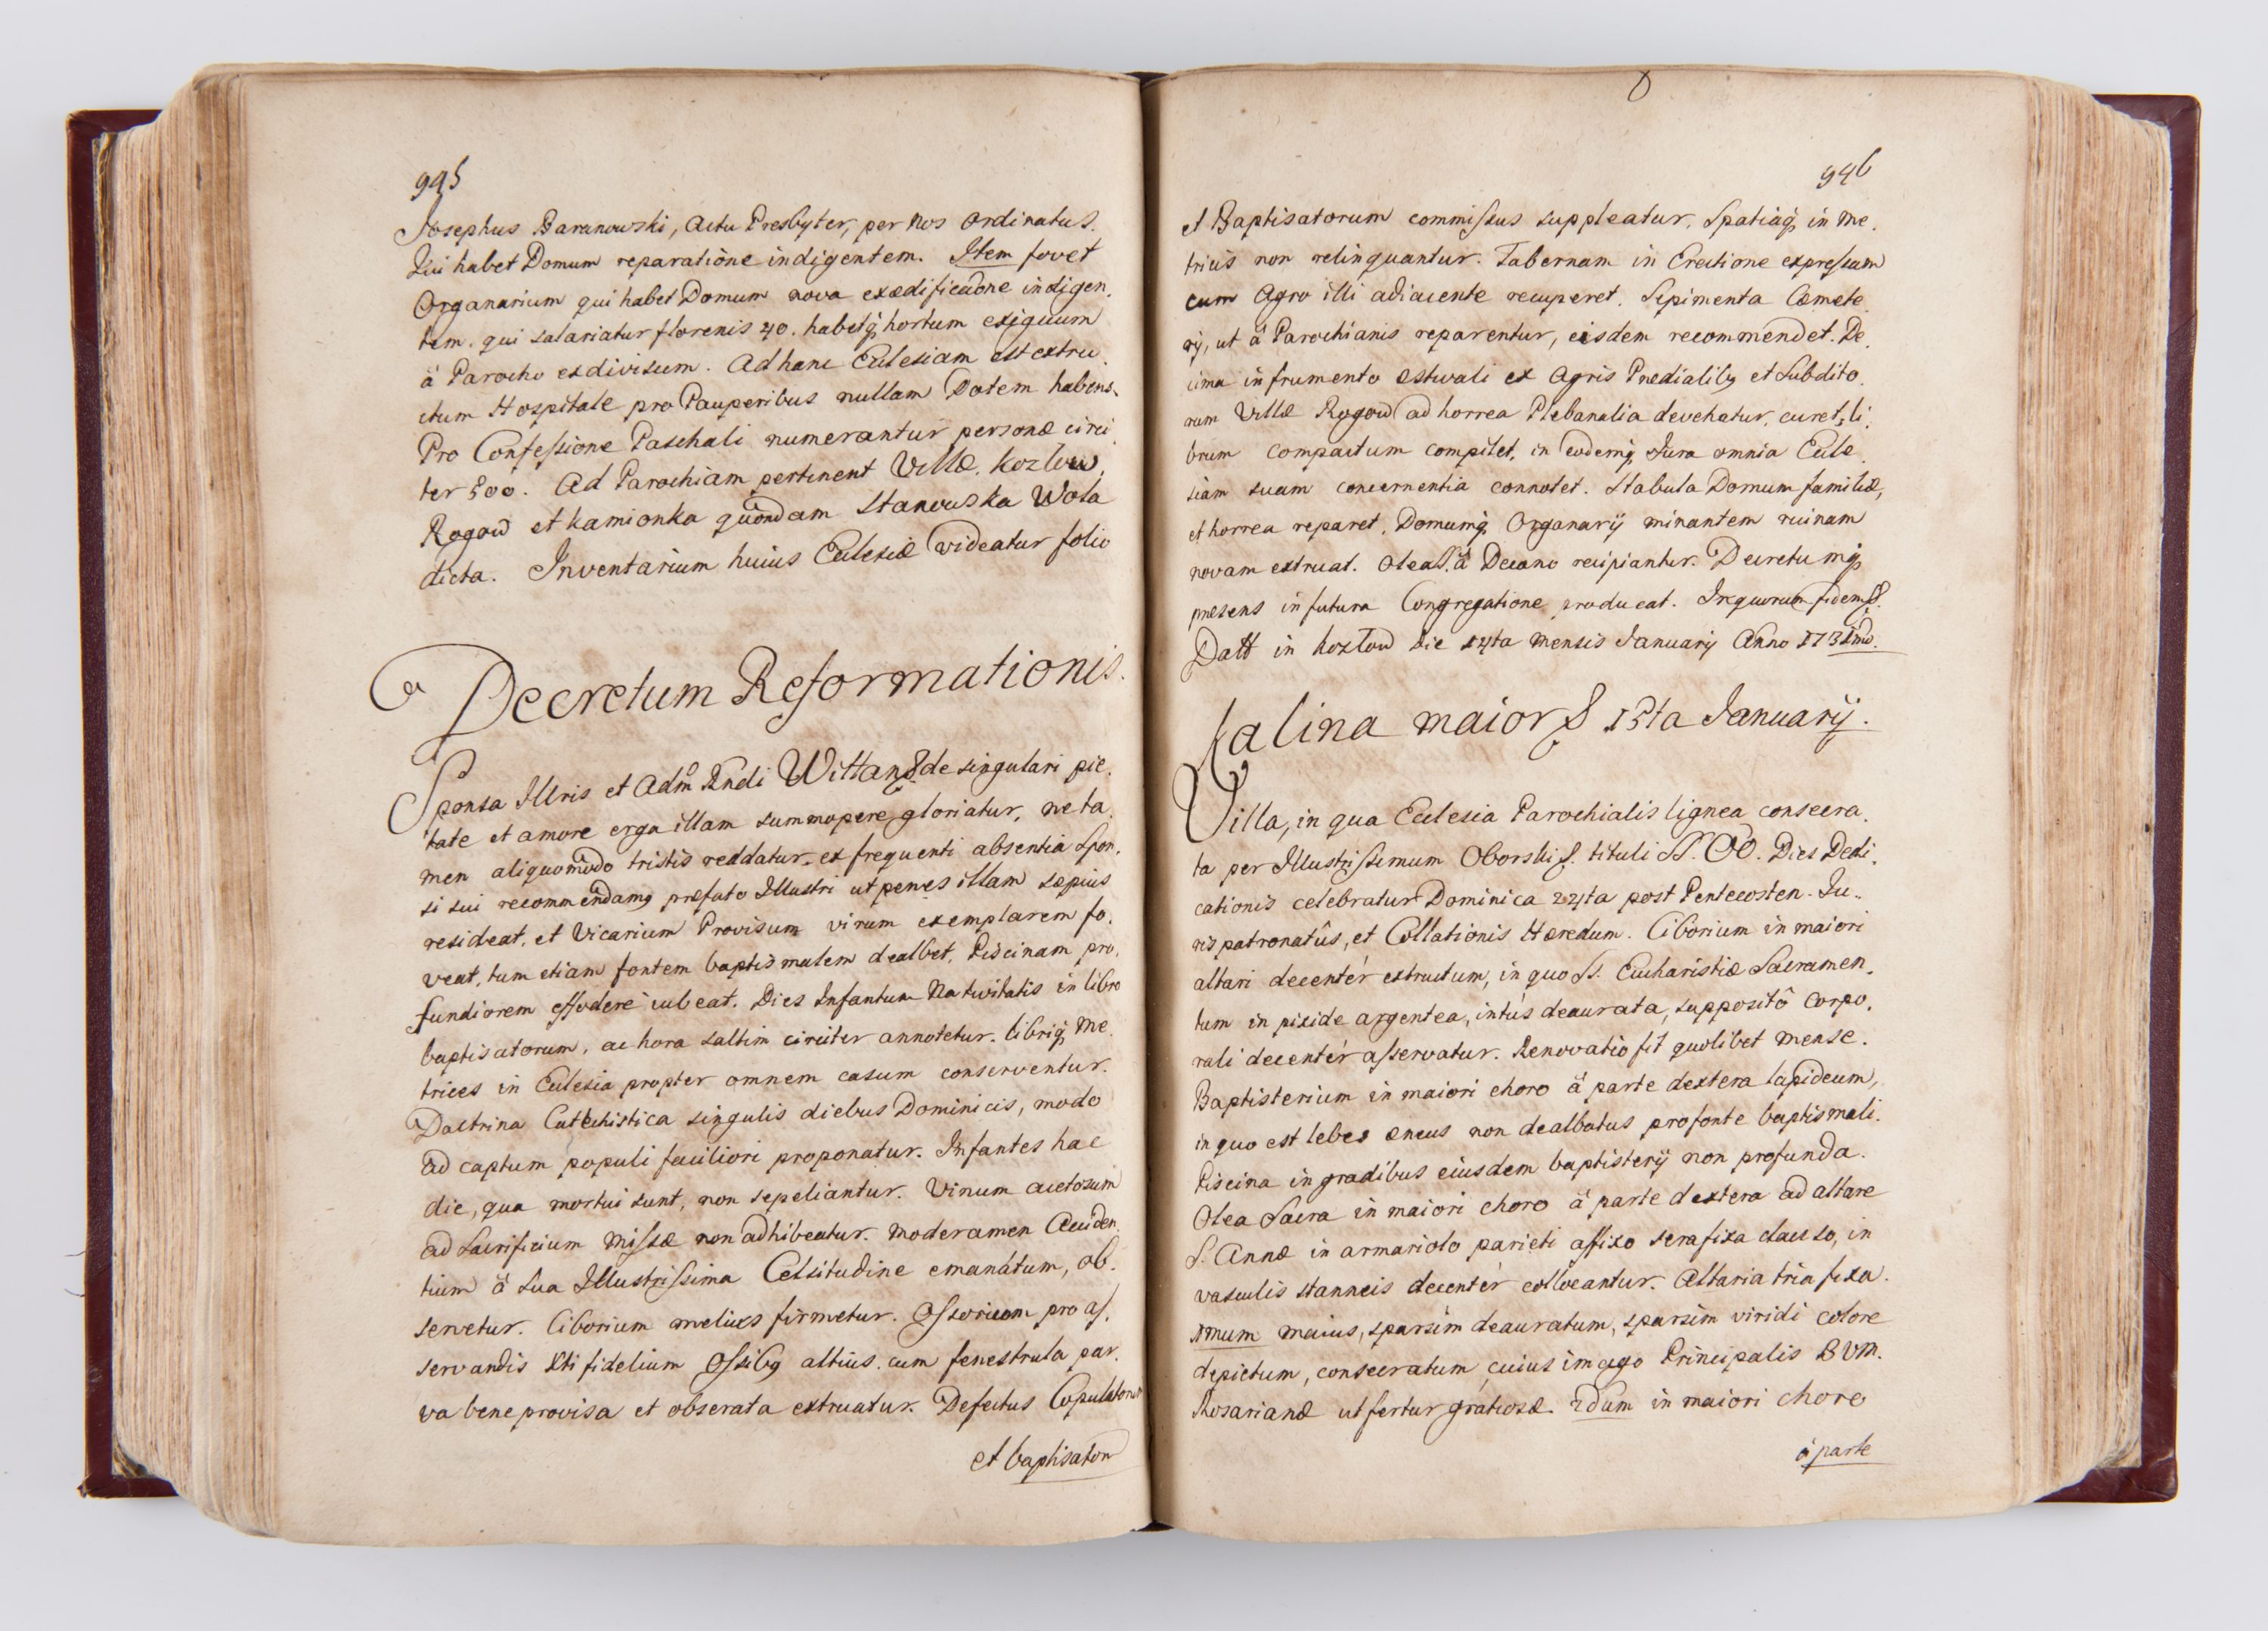 945
Josephus Baranowski, Actu Presbyter, per Nos Ordinatus.
Qui habet Domum reparatione indigentem. Item fovet
Organarium qui habet Domum nova exædificaõne indigen,
tem. qui salariatur florenis 40. habetq; hortum exiguum
â Parocho exdivisum. Ad hanc Ecclesiam est extru,
ctum Hospitale pro Pauperibus nullam Dotem habens.
Pro Confessione Paschali numerantur personæ circi,
ter 500. Ad Parochiam pertinent Villæ, Kozlow,
Rogow et Kamionka quondam Stanowska Wola
dicta. Inventarium huius Ecclesiæ videatur folio
Decretum Reformationis.
Sponsa Illris et Adm Rndi Wittan de singulari pie,
tate et amore erga illam summopere gloriatur, ne ta,
men aliquomodo tristis reddatur ex frequenti absentia Spon,
si sui recommendamq præfato Illustri ut penes illam sæpius
resideat, et Vicarium Provisum virum exemplarem fo,
veat, tum etiam fontem baptismalem dealbet, Piscinam pro,
fundiorem effodere iubeat. Dies Infantum Nativitatis in libro
baptisatorum, ac hora saltim circiter annotetur. libriq; Me,
trices in Ecclesia propter omnem casum conserventur.
Doctrina Catechistica singulis diebus Dominicis, modo
ad captum populi faciliori proponatur. Infantes hac
die, qua mortui sunt, non sepeliantur. Vinum acetosum
ad Sacrificium Missæ non adhibeatur. Moderamen Acciden,
tium â Sua Illustrissima Celsitudine emanátum, ob,
servetur. Ciborium melius firmetur. Ossorium pro as,
servandis Xti fidelium Ossibq altius, cum fenestrula par,
va bene provisa et obserata extruatur. Defectus Copulatorum
et baptisatom
946
et Baptisatorum commissus suppleatur. Spatiaq; in Me,
tricis non relinquantur. Tabernam in Erectione expressam
cum Agro illi adiacente recuperet. Sepimenta Cæmete,
rij, ut â Parochianis reparentur, eisdem recommendet. De,
cima in frumento æstivali ex Agris Prædialibq et Subdito,
rum Villæ Rogow ad horrea Plebanalia devehatur, curet, li,
brum compactum compilet, in eodemq; Jura omnia Eccle,
siam suam concernentia connotet. Stabula Domum familiæ,
et horrea reparet, Domumq; Organarij minantem ruinam
novam extruat. Olea S. â Decano recipiantur. Decretumq;
præsens in futura Congregatione producat. In quorum fidem
Datt in Kozlow die 14ta Mensis Januarij Anno 1731mo.
Kalina maior 15ta Januarij.
Villa, in qua Ecclesia Parochialis lignea consecra,
ta per Illustrissimum Oborski S. tituli SS. OO. Dies Dedi,
cationis celebratur Dominica 24ta post Pentecosten. Ju,,
ris patronatûs, et Collationis Hæredum. Ciborium in maiori
altari decentér extructum, in quo SS. Eucharistiæ Sacramen,
tum in pixide argentea, intús deaurata, supposito Corpo,
rali decentér asservatur. Renovatio fit quolibet Mense.
Baptisterium in maiori choro â parte dextera lapideum,
in quo est lebes æneus non dealbatus pro fonte baptismali.
Piscina in gradibus eiusdem baptisterij non profunda.
Olea Sacra in maiori choro â parte dextera ad altare
S. Annæ in armariolo parieti affixo sera fixa clauso, in
vasculis stanneis decentér collocantur. Altaria tria fixa.
1mum maius, sparsim deauratum, sparsim viridi colore
depictum, consecratum cuius imago Principalis BVM.
Rosarianæ ut fertur gratiosæ. 2dum in maiori choro
â parte